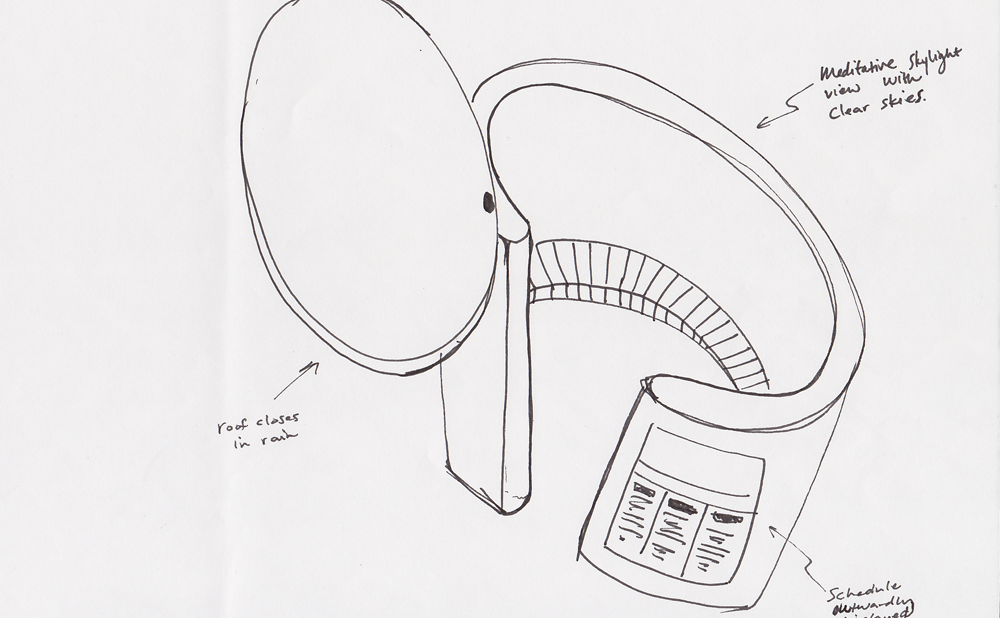 Meditative Skylight
view with
Clear skies.
roof closes
in rain
Schedule
outwardly